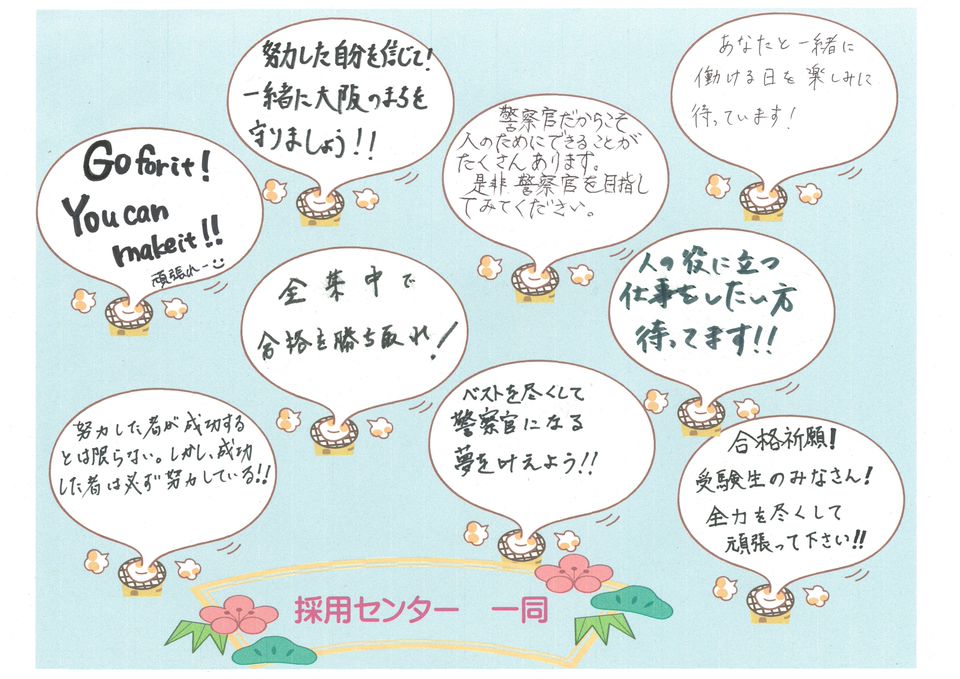 努力した自分を信じて!
一緒に大阪のまちを
守りましょう!!
あなたと一緒に
働ける日を楽しみに
待っています!
警察官だからこそ
人のためにできることが
たくさんあります。
是非警察官を目指し
てみてください。
Go for it!
You can
make it!!
頑張れー
全集中で
合格を勝ち取れ!
人の役に立つ
仕事をしたい方
待ってます!!
努力した者が成功する
とは限らない。しかし、成功
した者は必ず努力している!!
ベストを尽くして
警察官になる
夢を叶えよう!!
合格祈願!
受験生のみなさん!
全力を尽くして
頑張って下さい!!
採用センター 一同